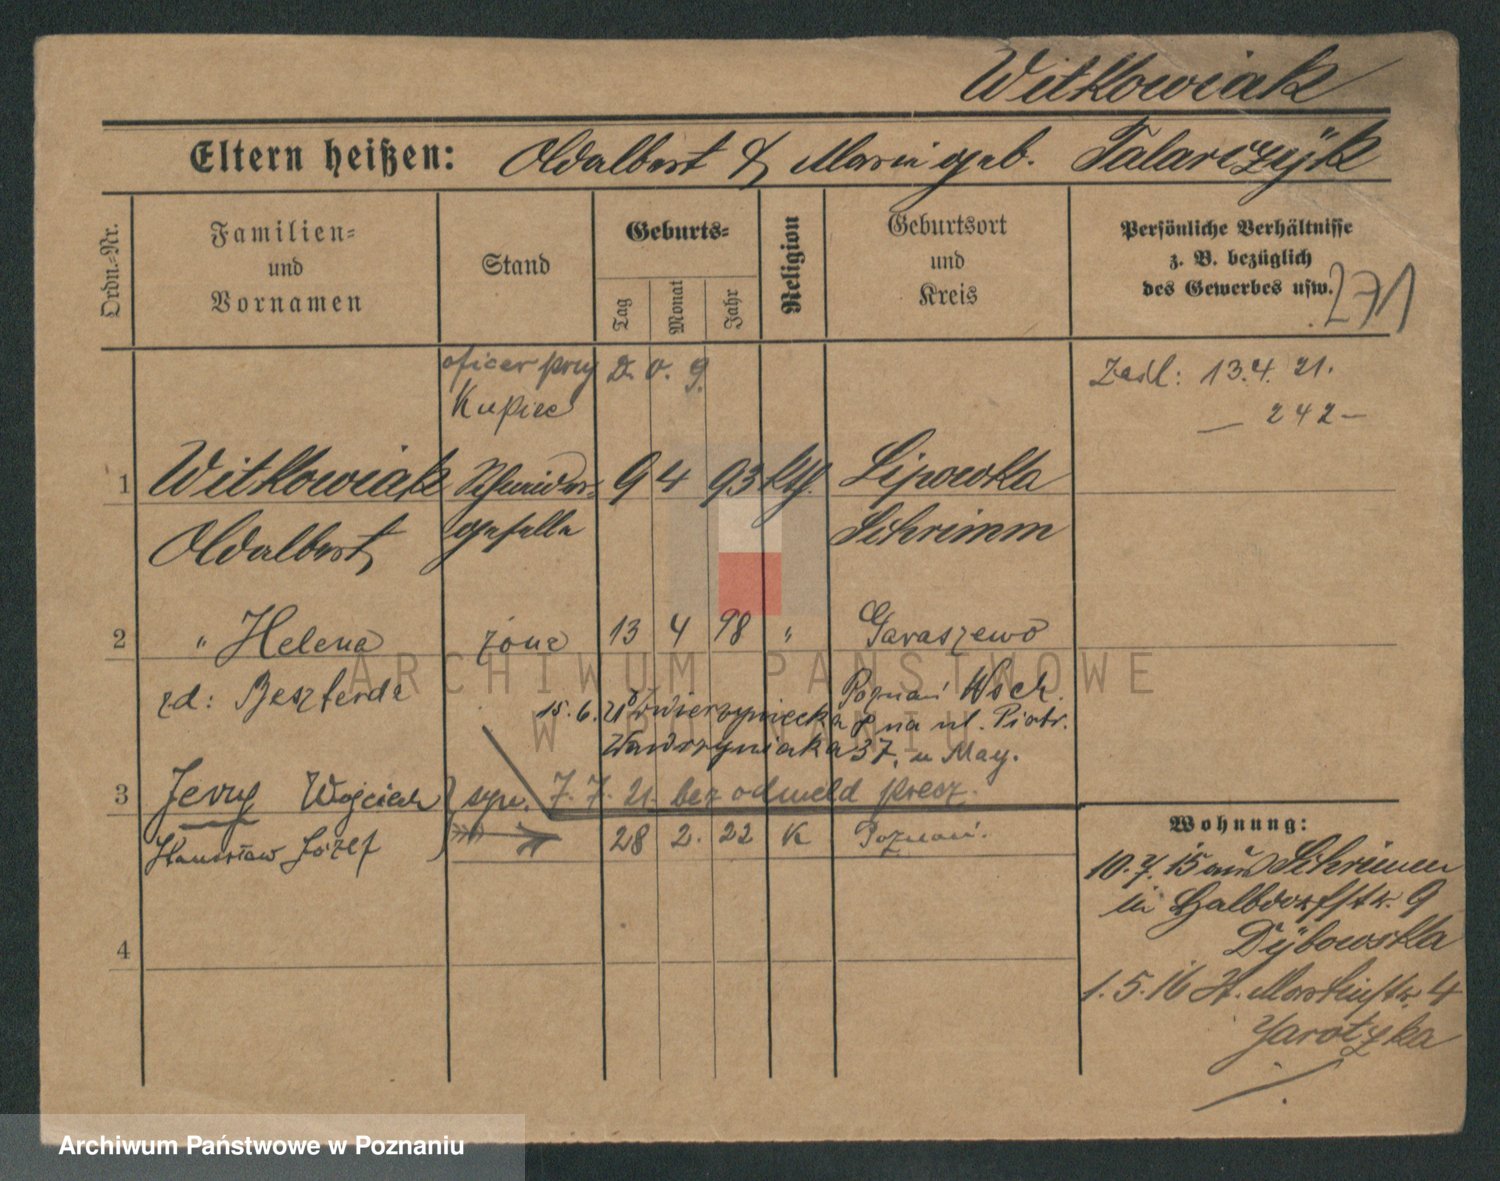 Witkowiak
Eltern heißen: Adalbert & Marie geb. Talarczyk
Ordn.=Nr.
Familien=
und
Vornamen
Stand
Geburts=
Tag
Monat
Jahr
Religion
Geburtsort
und
Kreis
Persönliche Verhältnisse
z. B. bezüglich
des Gewerbes usw.
271
oficer przy D. O. G.
Kupiec
Zasł: 13.4.21.
— 242 —
1 Witkowiak Schneider- 9 4 93 kth. Lipowka
Adalbert geselle Schrimm
2 " Helena żona 13 4 98 " Garaszewo
zd: Beszterda
15.6.21 Zwierzyniecka 8 na ul. Piotr.
Wawrzyniaka 37, u May.
3 Jerzy Wojciech syn. 7.7.21 bez odmeld precz.
Stanisław Józef 28 2. 22 K Poznań.
4
Wohnung:
10.7.15 aus Schrimm
in Halbdorfstr. 9
Dybowska
1.5.16 St. Martinstr. 4
Jarotzka
ARCHIWUM PAŃSTWOWE
W POZNANIU
Archiwum Państwowe w Poznaniu